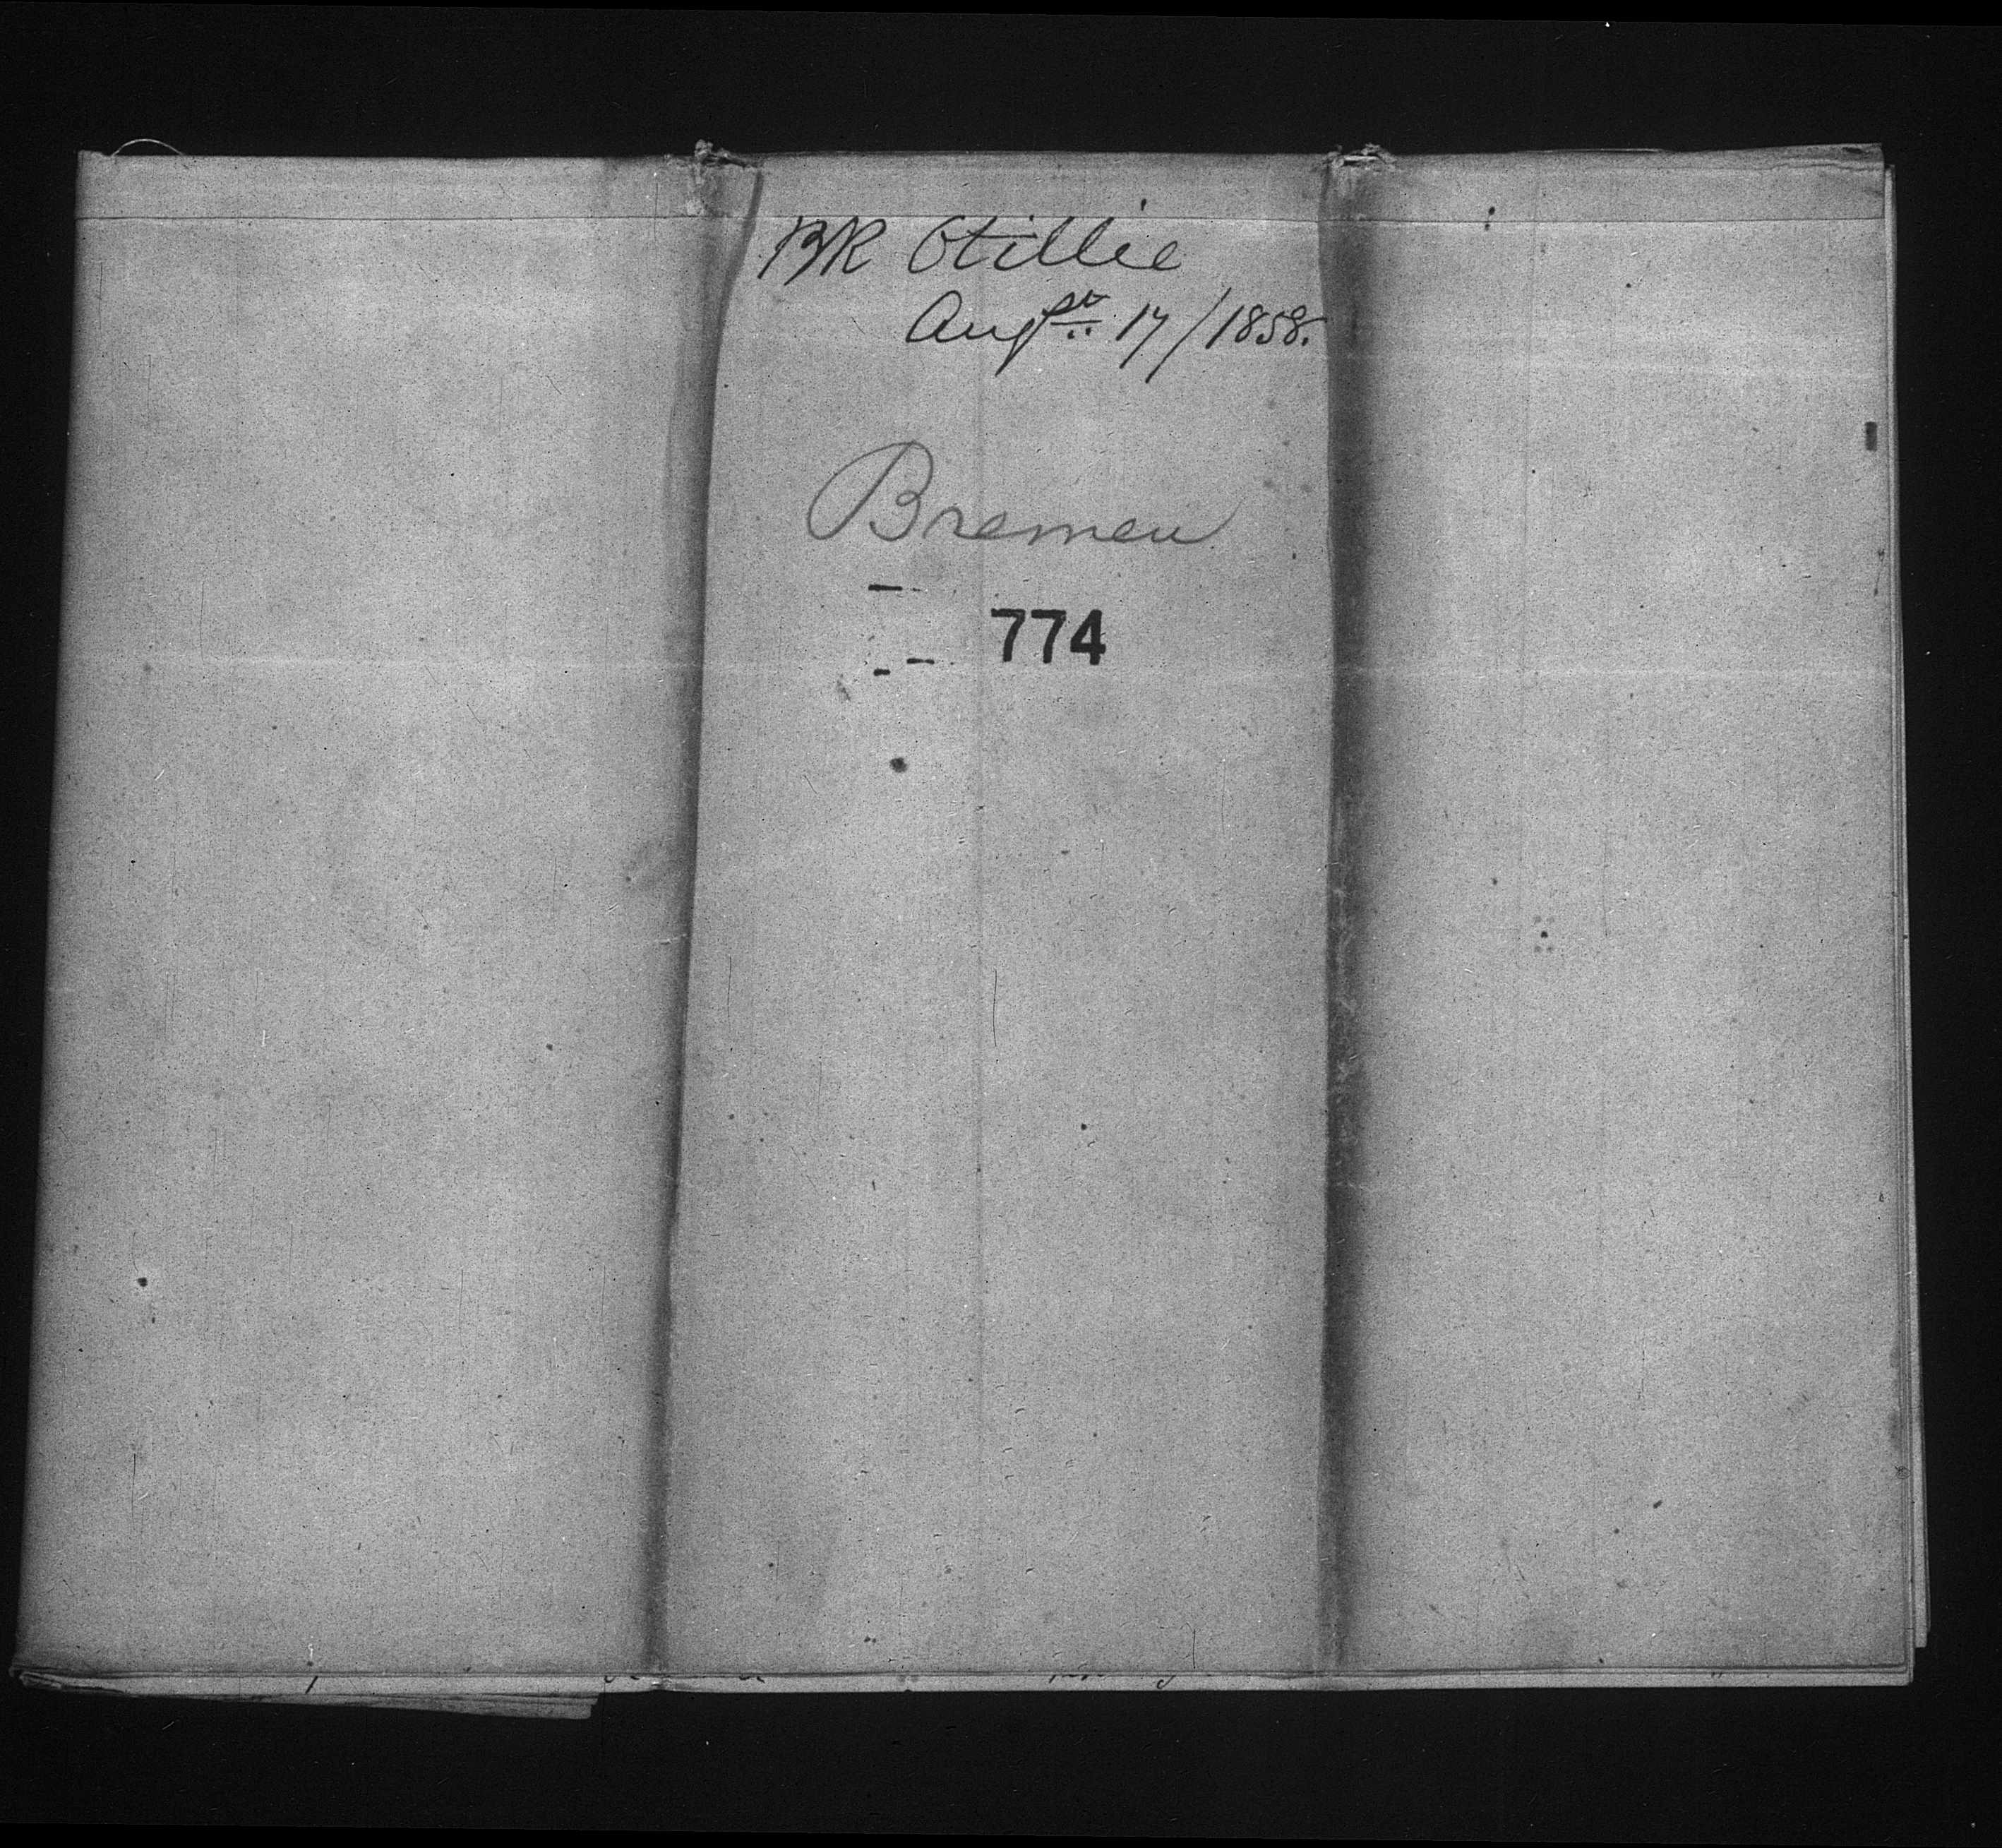 BK Otillie
Augst 17/1858.
Bremen
774